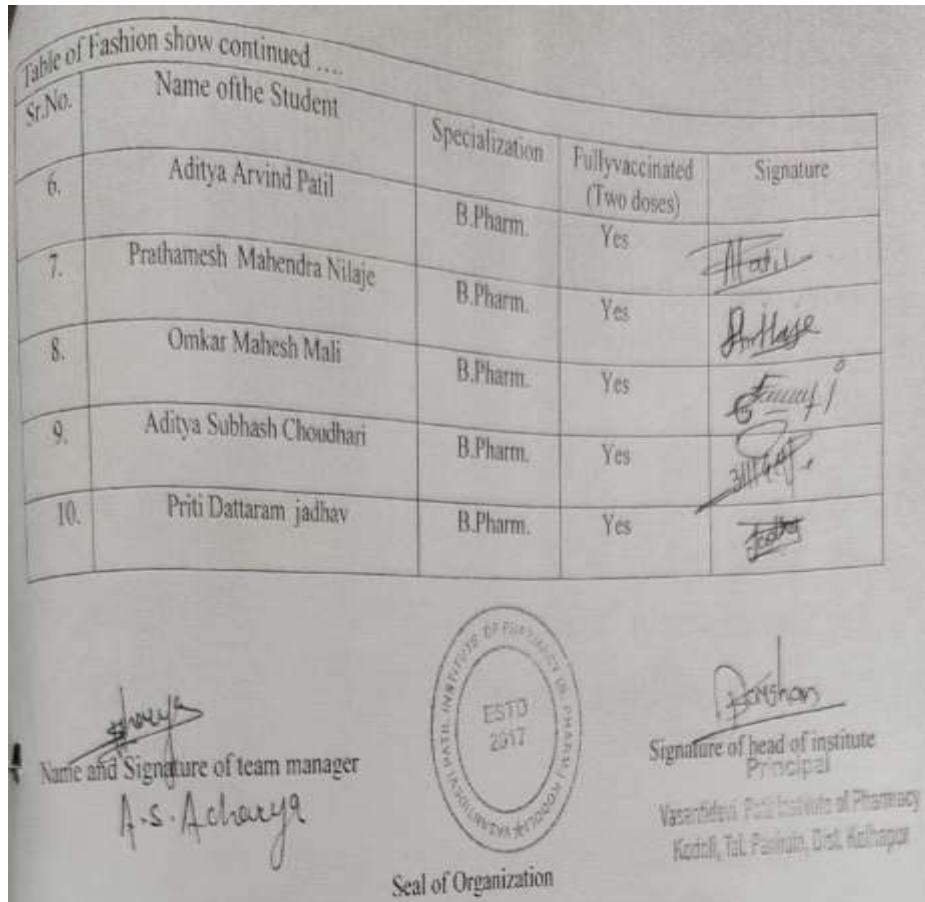 Table of Fashion show continued ....
Sr.No. Name ofthe Student Specialization Fullyvaccinated (Two doses) Signature
6. Aditya Arvind Patil B.Pharm. Yes Patil
7. Prathamesh Mahendra Nilaje B.Pharm. Yes
8. Omkar Mahesh Mali B.Pharm. Yes
9. Aditya Subhash Choudhari B.Pharm. Yes
10. Priti Dattaram jadhav B.Pharm. Yes
Name and Signature of team manager
A.S. Acharya
VASANTIDEVI PATIL INSTITUTE OF PHARMACY KODOLI
ESTD
2017
Seal of Organization
Signature of head of institute
Principal
Vasantidevi Patil Institute of Pharmacy
Kodoli, Tal. Panhala, Dist. Kolhapur